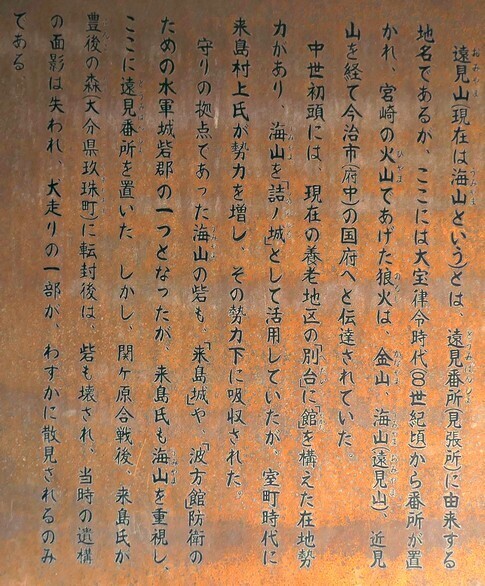 遠見山(現在は海山という)とは、遠見番所(見張所)に由来する
地名であるが、ここには大宝律令時代(8世紀頃)から番所が置
かれ、宮崎の火山であげた狼火は、金山、海山(遠見山)、近見
山を経て今治市(府中)の国府へと伝達されていた。
中世初頭には、現在の養老地区の「別台」に「館」を構えた在地勢
力があり、海山を「詰ノ城」として活用していたが、室町時代に
来島村上氏が勢力を増し、その勢力下に吸収された。
守りの拠点であった海山の砦も、「来島城」や、「波方館」防衛の
ための水軍城砦郡の一つとなったが、来島氏も海山を重視し、
ここに遠見番所を置いた しかし、関ヶ原合戦後、来島氏が
豊後の森(大分県玖珠町)に転封後は、砦も壊され、当時の遺構
の面影は失われ、犬走りの一部が、わずかに散見されるのみ
である